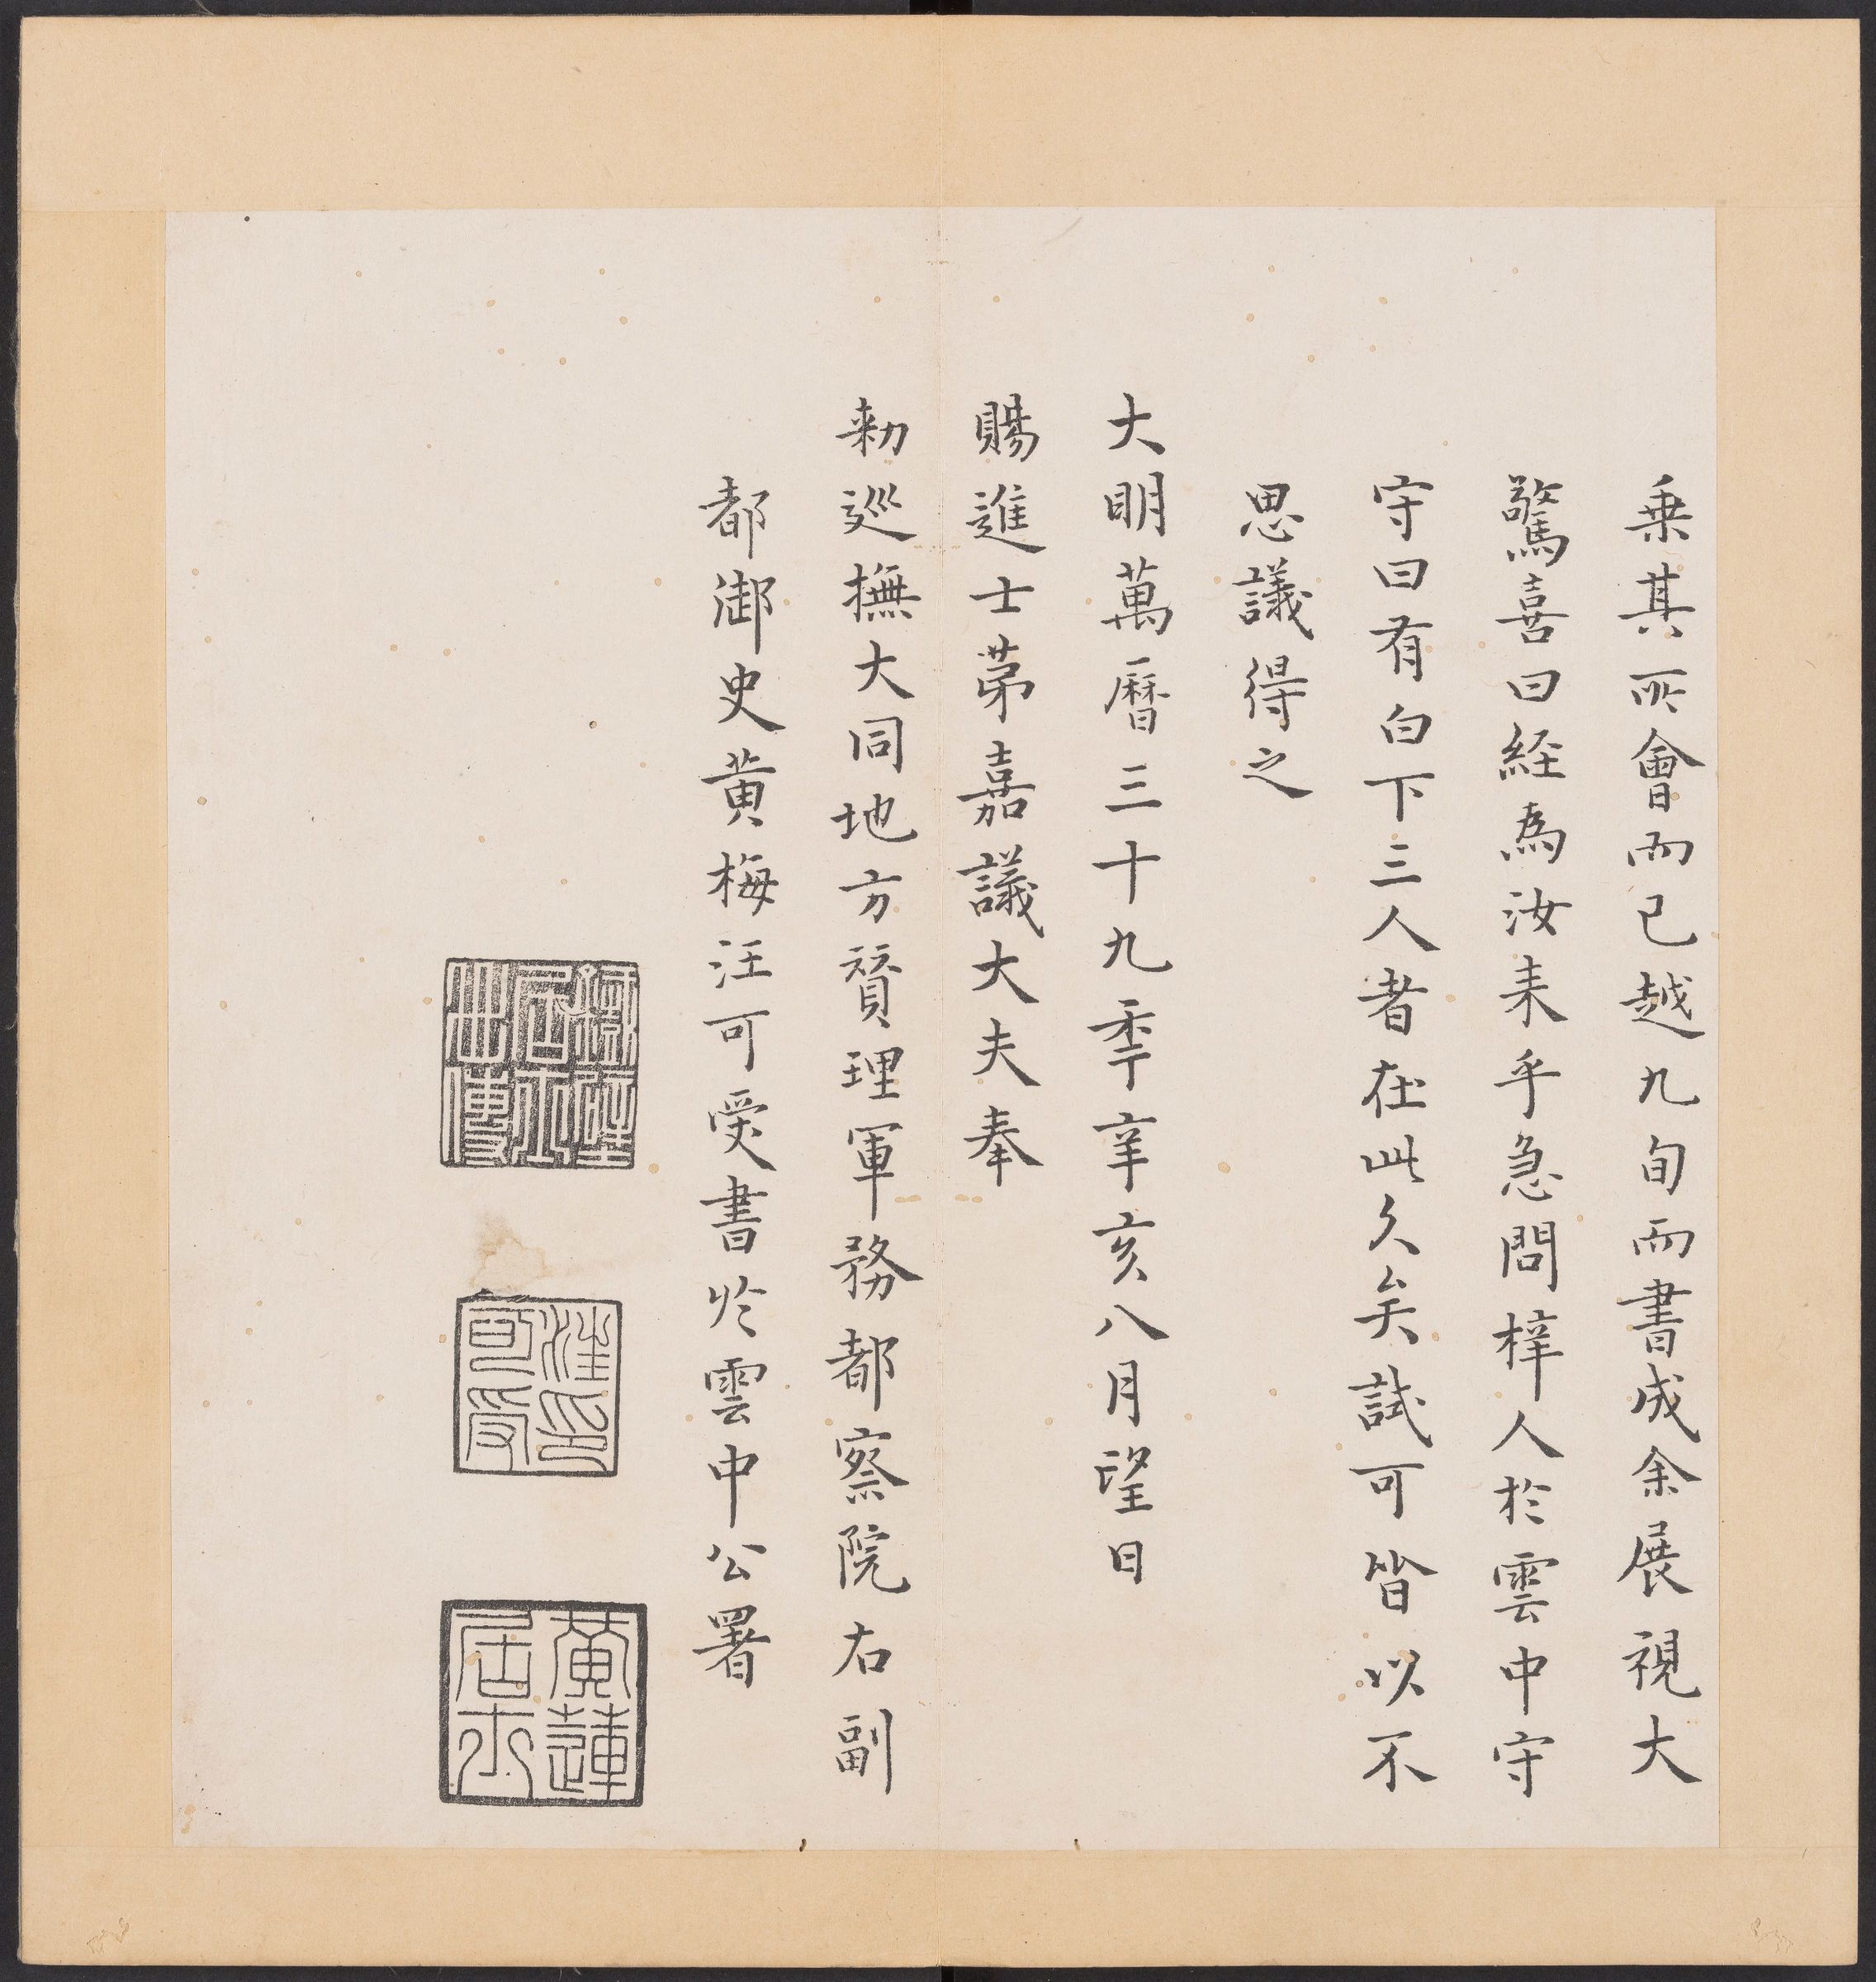 乗其所會而已越九旬而書成余展視大
驚喜曰経為汝来乎急問梓人於雲中守
守曰有白下三人者在此久矣試可皆以不
思議得之
大明萬曆三十九秊辛亥八月望日
賜進士苐嘉議大夫奉
勑巡撫大同地方賛理軍務都察院右副
都御史黄梅汪可受書於雲中公署
汪可受印
黄蓮居士